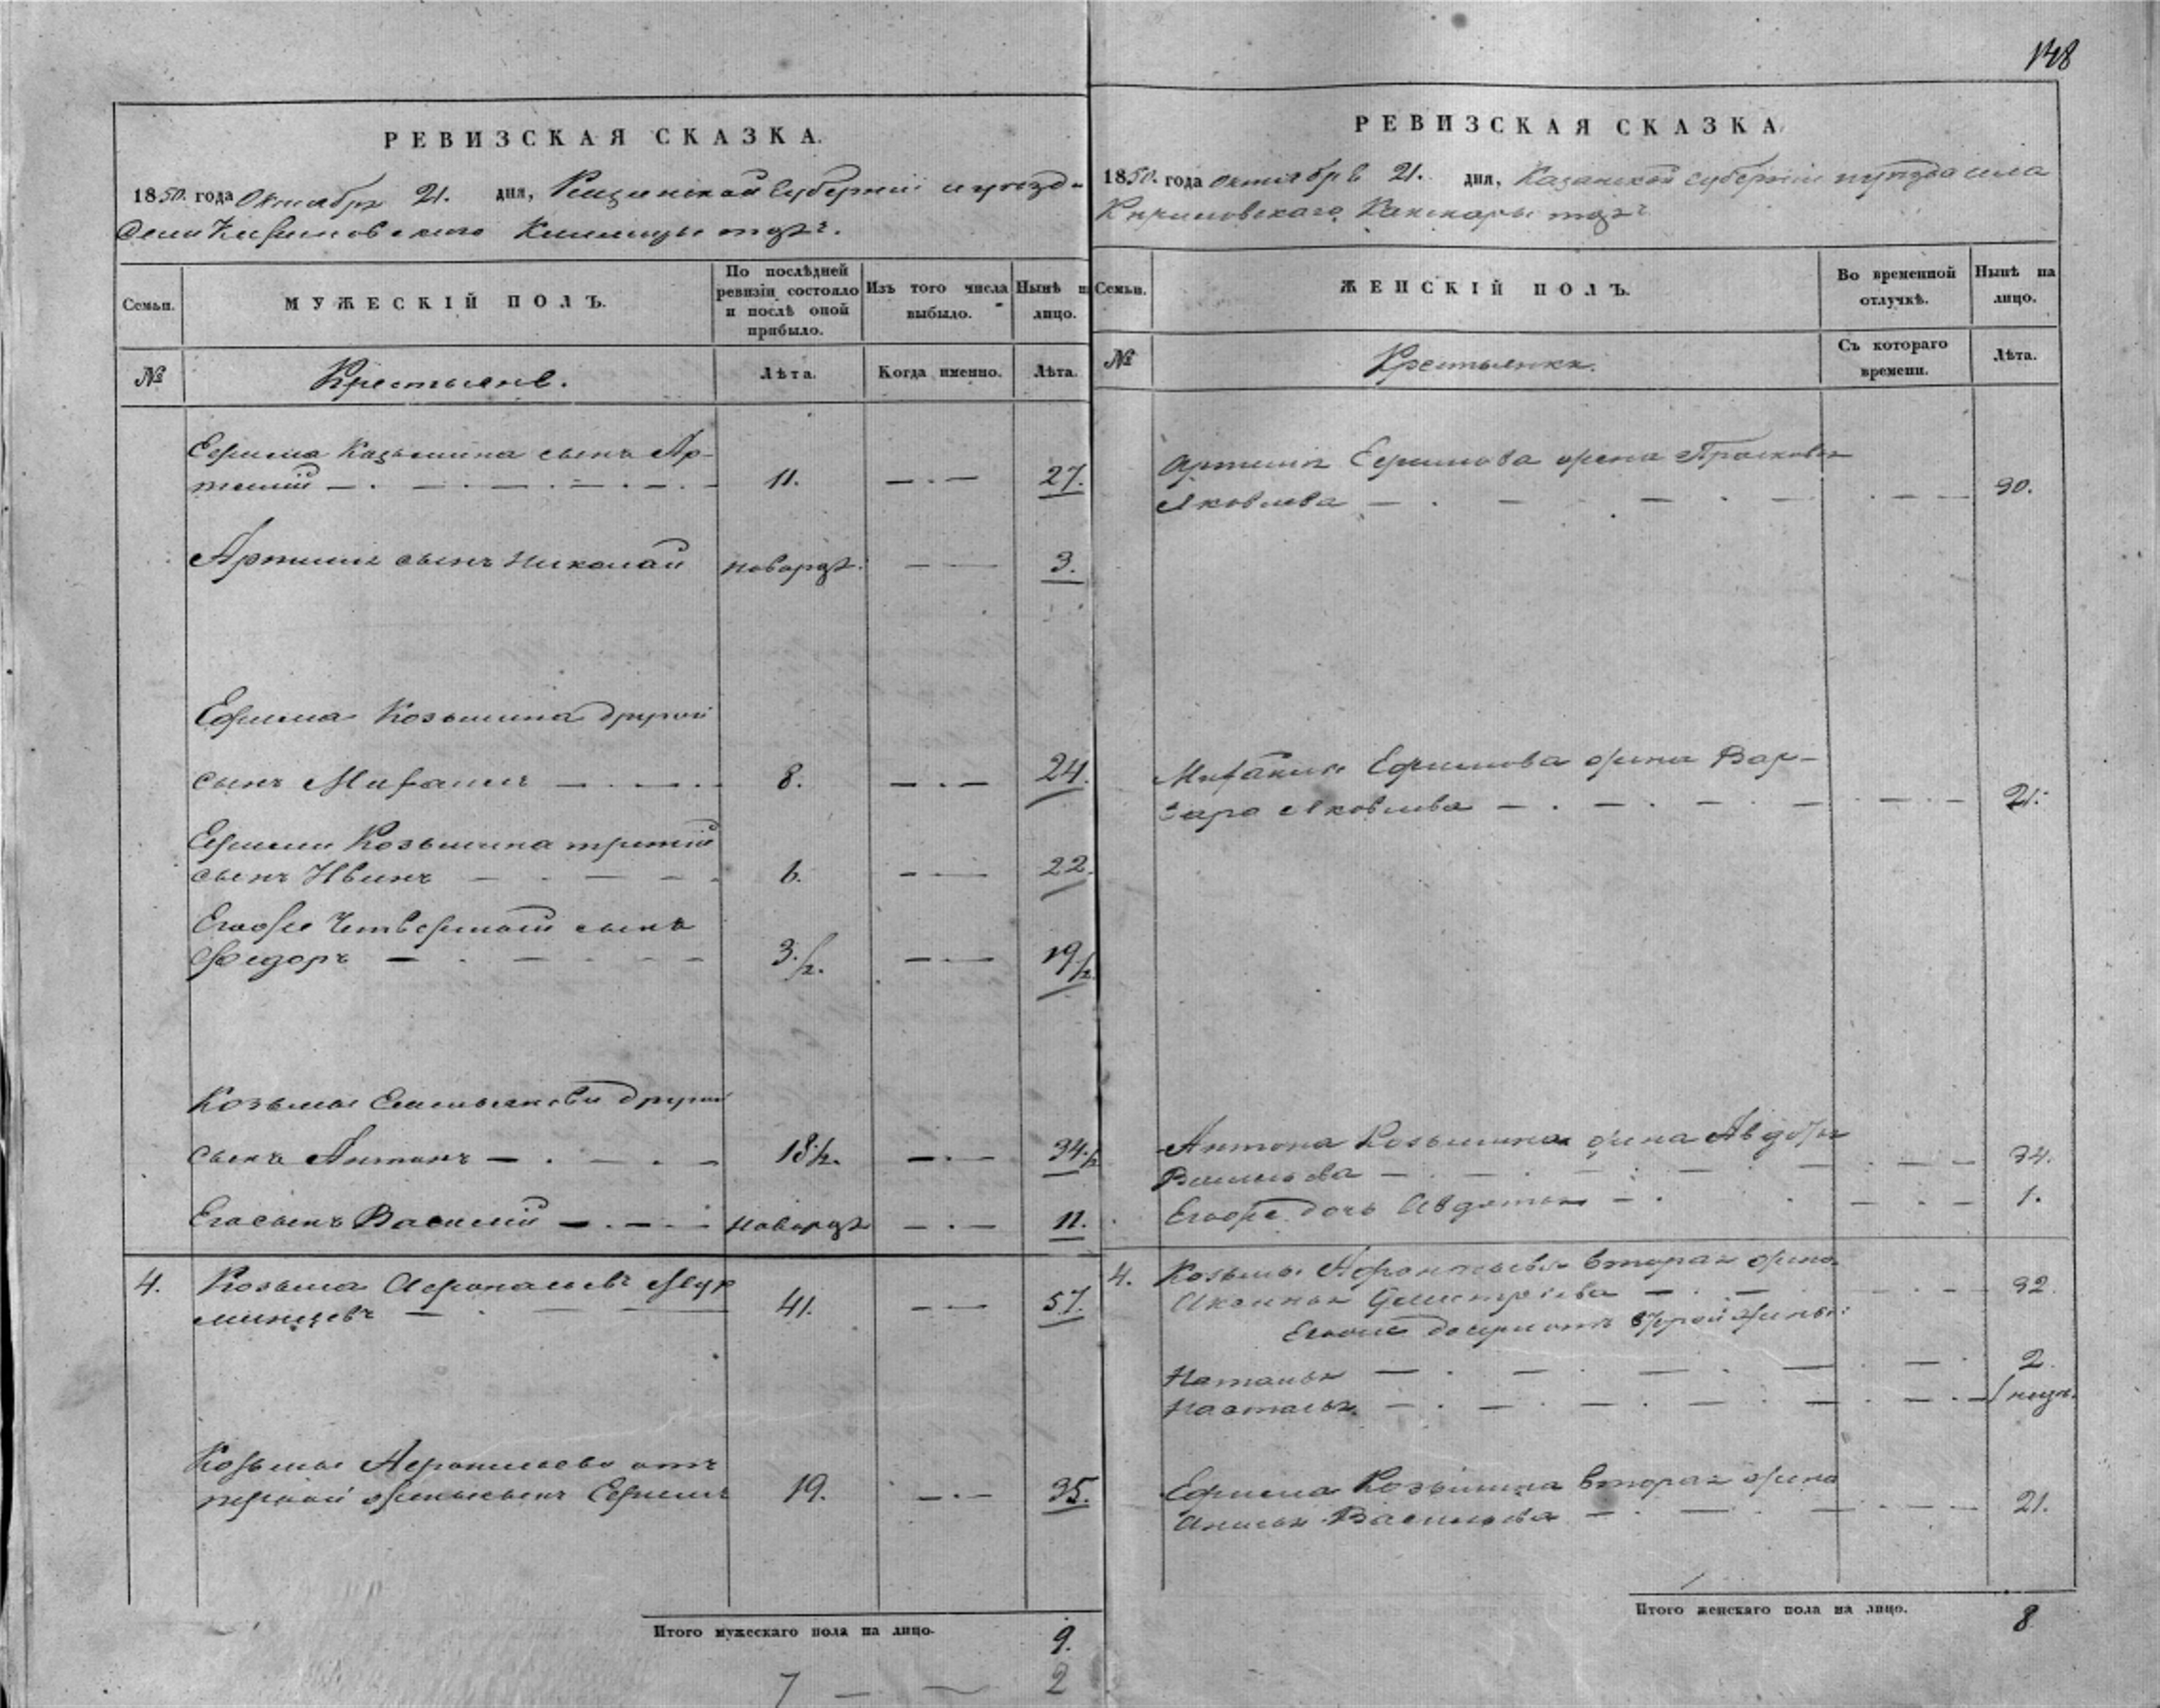 148
РЕВИЗСКАЯ СКАЗКА.
1850. года Октября 21. дня, Казанской Губернии и уезда
Села Кириловскаго Кансары тожъ.
Семьи.
МУЖЕСКІЙ ПОЛЪ.
По послѣдней ревизіи состояло и послѣ оной прибыло.
Изъ того числа выбыло.
Нынѣ на лицо.
№
Крестьяне.
Лѣта.
Когда именно.
Лѣта.
Ефима Козьмина сынъ Ар-
темій — . — . — 11. — . — 27.
Артемья сынъ Николай новорож: — — 3.
Ефима Козьмина другой
сынъ — . — . 8. — . — 24.
Ефима Козьмина третій
сынъ Иванъ — . — 6. — . — 22.
Егоже Четвертый сынъ
Федоръ — . — 3 1/2. — . — 19 1/2
Козьмы другой
сынъ Антонъ — . — . — 18 1/2. — . — 34 1/2
Его сынъ Василій — . — . новорож — . — 11.
4. Козьма Афонасьевъ
— . — 41. — — 57.
Козьмы Афонасьева отъ
первой жены сынъ Ефимъ 19. — . — 35.
Итого мужескаго пола на лицо. 9.
7 — 2
РЕВИЗСКАЯ СКАЗКА
1850. года октября 21. дня, Казанской губерніи и уѣзда села
Кириловскаго Кансары тожъ
Семьи.
ЖЕНСКІЙ ПОЛЪ.
Во временной отлучкѣ.
Нынѣ на лицо.
№
Крестьянки.
Съ котораго времени.
Лѣта.
Артемья Ефимова жена Прасковья
Яковлева — . — . — 30.
Ефимова жена Вар-
вара Яковлева — . — . — 21.
Антона Козьмина жена Авдотья
Васильева — . — . — 34.
Егоже дочь Авдотья — . — 1.
4. Козьмы Афонасьева вторая жена
Аксинья Дмитріева — . — 32.
Егоже дочери отъ второй жены:
Наталья — . — . — 2.
Наталья — . — . — нед.
Ефима Козьмина вторая жена
Васильева — . — . — 21.
Итого женскаго пола на лицо. 8